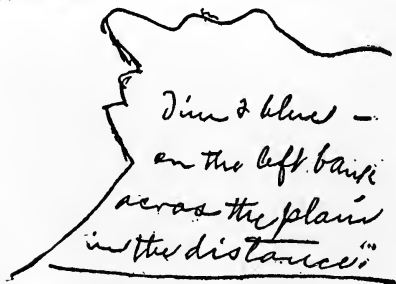 Dim & blue –
on the left bank
across the plain
in the distance."